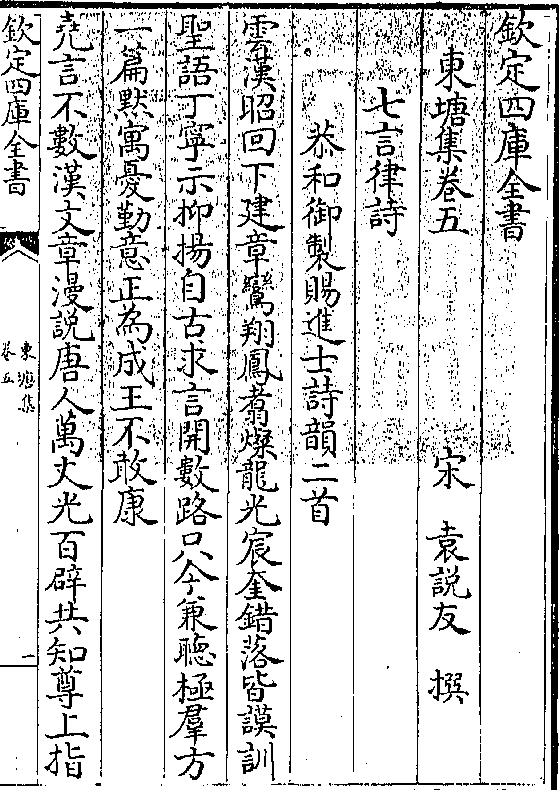 欽定四庫全書
東塘集卷五
宋 袁說友 撰
七言律詩
恭和御製賜進士詩韻二首
雲漢昭回下建章鸞翔鳳翥燦龍光宸奎錯落皆謨訓
聖語丁寧示抑揚自古求言開數路只今兼聽極羣方
一篇默寓憂勤意正為成王不敢康
堯言不數漢文章漫説唐人萬丈光百辟共知尊上指
欽定四庫全書
東塘集
卷五
一